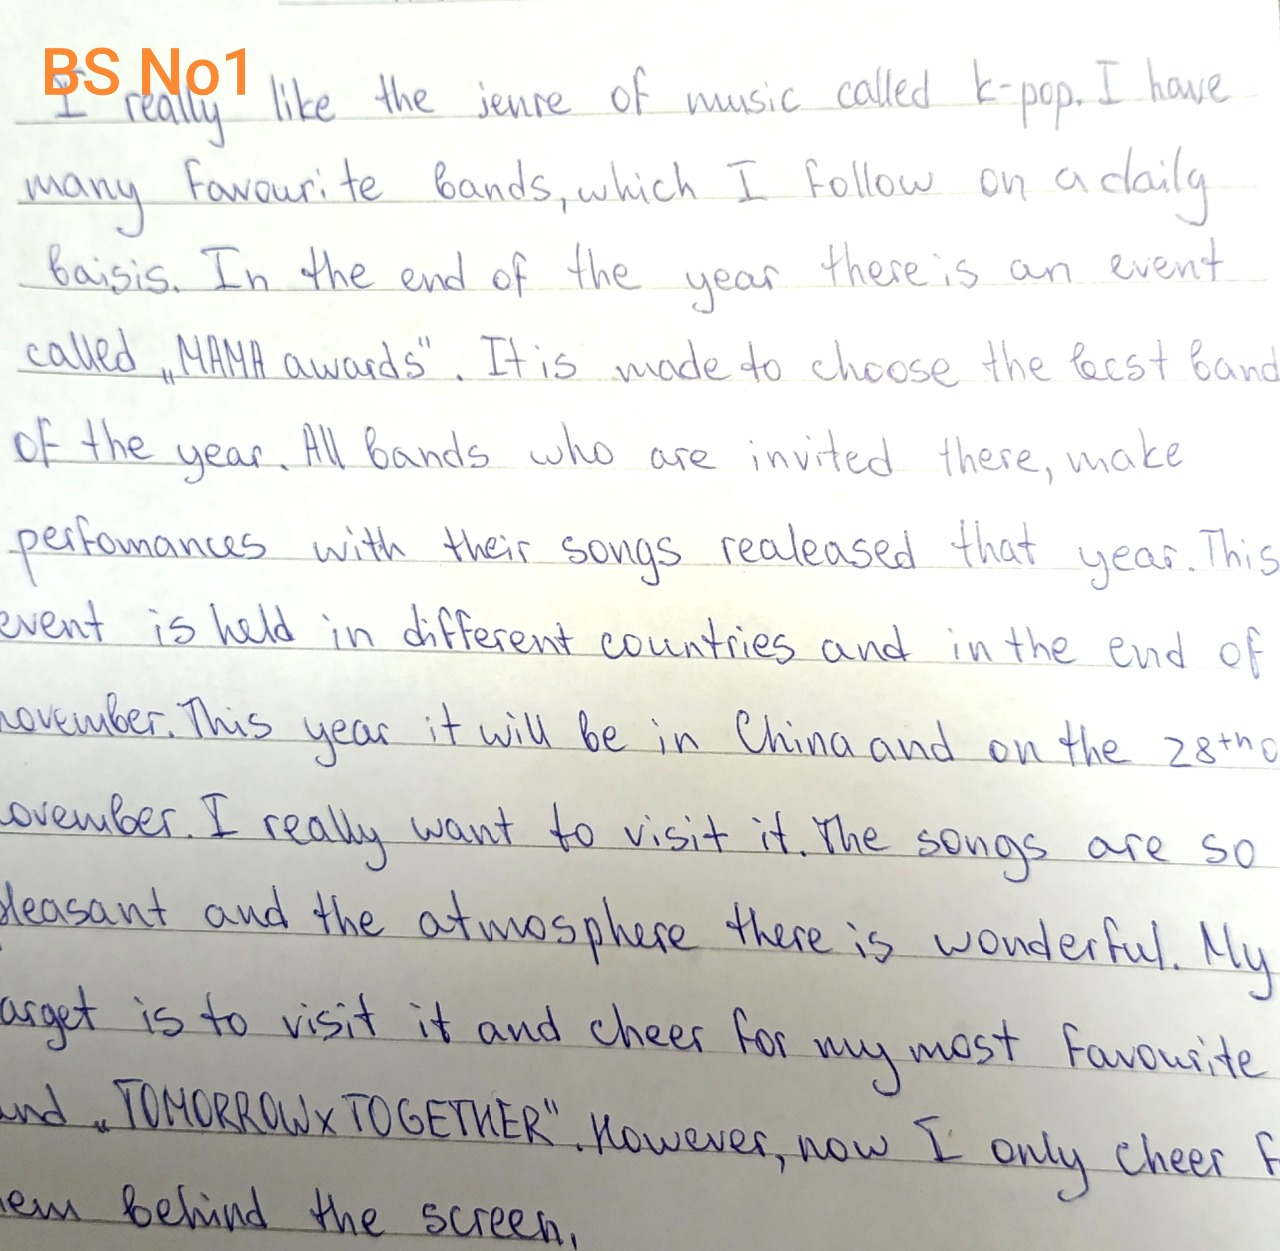 BS No1
I really like the jenre of music called k-pop. I have
many favourite bands, which I follow on a daily
baisis. In the end of the year there is an event
called „MAMA awards". It is made to choose the best band
of the year. All bands who are invited there, make
perfomances with their songs realeased that year. This
event is held in different countries and in the end of
november. This year it will be in China and on the 28th o
ovember. I really want to visit it. The songs are so
pleasant and the atmosphere there is wonderful. My
arget is to visit it and cheer for my most favourite
and „TOMORROW x TOGETHER". However, now I only cheer f
hem behind the screen.